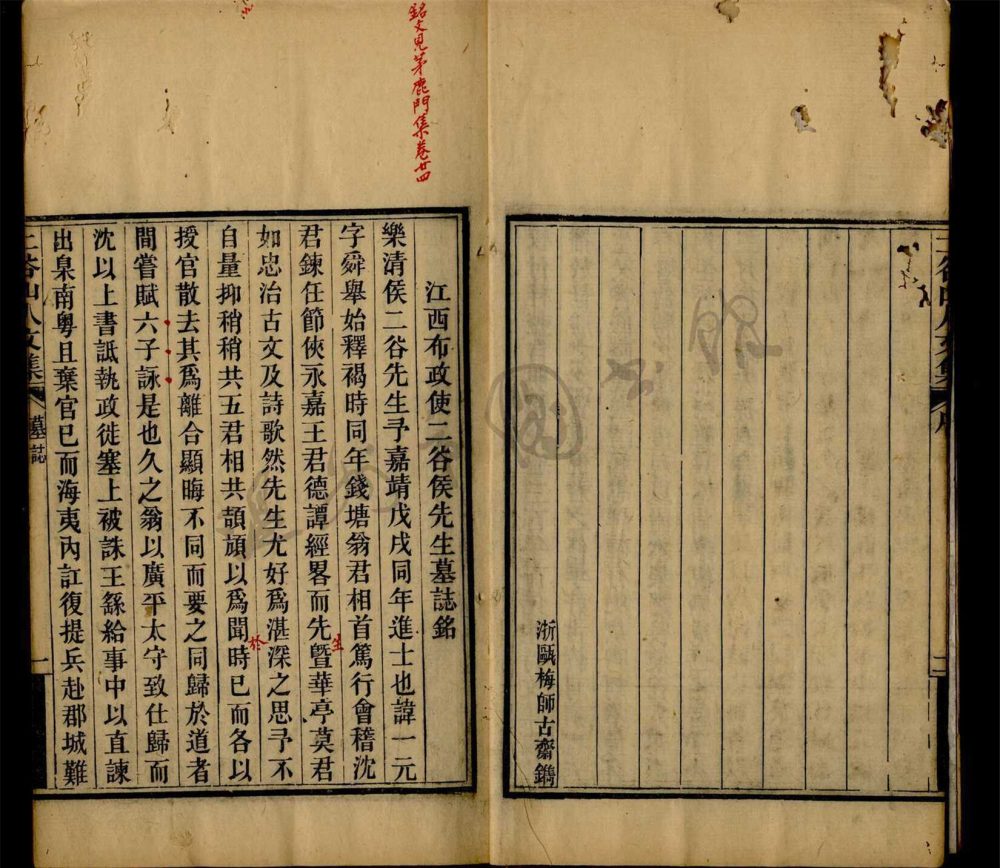 浙甌梅師古齋鐫
銘文見茅鹿門集卷廿四
江西布政使二谷侯先生墓誌銘
樂清侯二谷先生予嘉靖戊戌同年進士也諱一元
字舜舉始釋褐時同年錢塘翁君相首篤行會稽沈
君鍊任節俠永嘉王君德譚經畧而先生暨華亭莫君
如忠治古文及詩歌然先生尤好爲湛深之思予不
自量抑稍稍共五君相共頡頏以爲聞於時已而各以
授官散去其爲離合顯晦不同而要之同歸於道者
間嘗賦六子詠是也久之翁以廣平太守致仕歸而
沈以上書詆執政徙塞上被誅王繇給事中以直諫
出臬南粵且棄官已而海夷內訌復提兵赴郡城難
二谷山人文集
墓誌
一